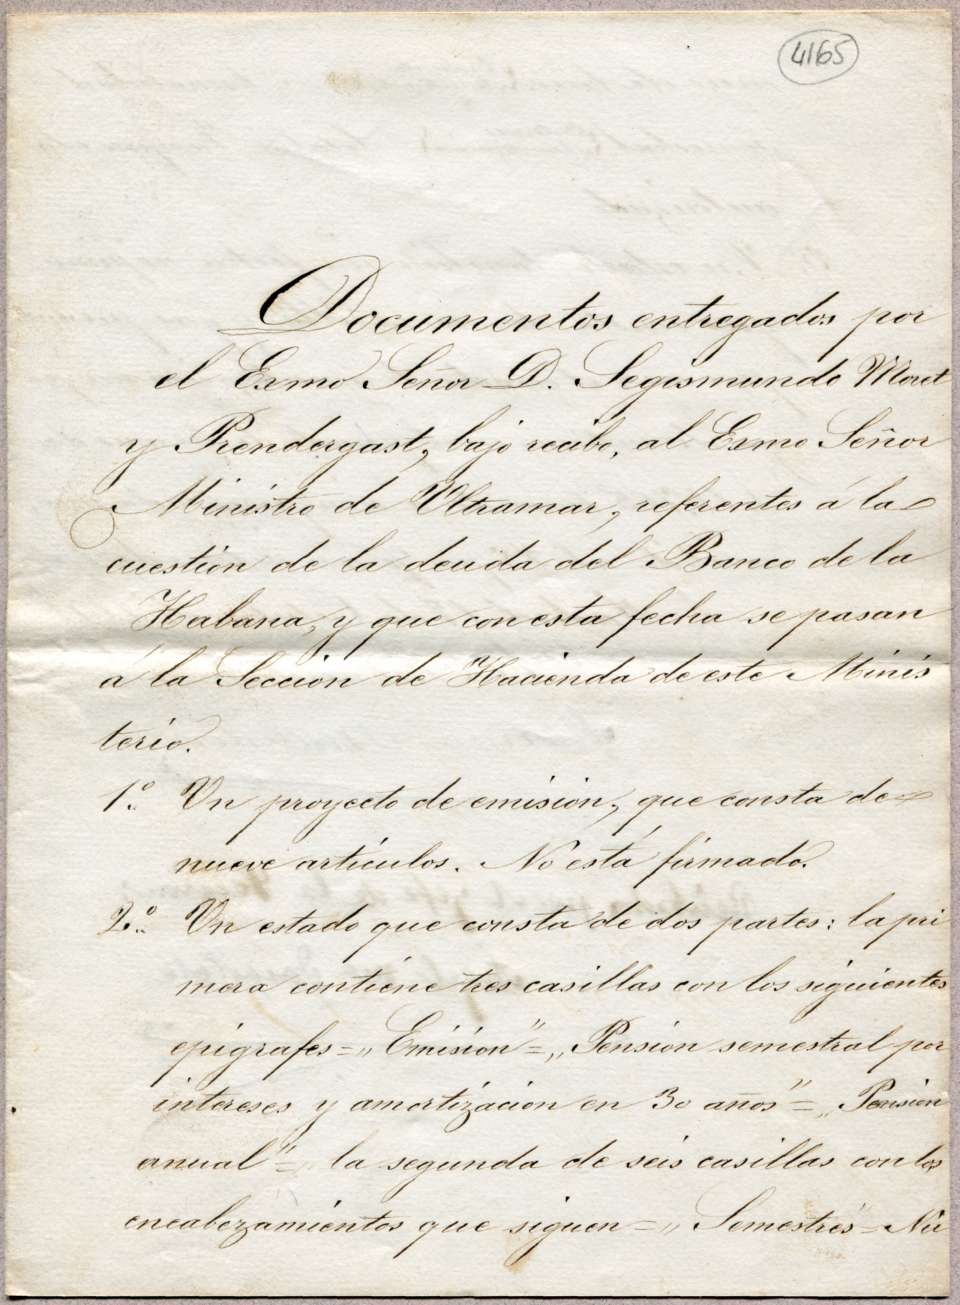 4165
Documentos entregados por
el Exmo Señor D. Segismundo Moret
y Prendergast, bajo recibo, al Exmo Señor
Ministro de Ultramar, referentes á la
cuestión de la deuda del Banco de la
Habana, y que con esta fecha se pasan
á la Sección de Hacienda de este Minis
terio.
1º Un proyecto de emisión, que consta de
nueve artículos. No está firmado.
2º Un estado que consta de dos partes: la pri
mera contiene tres casillas con los siguientes
epigrafes = „Emisión" = „Pensión semestral por
intereses y amortización en 30 años" = „Pensión
anual" = la segunda de seis casillas con los
encabezamientos que siguen = „Semestres = Nú